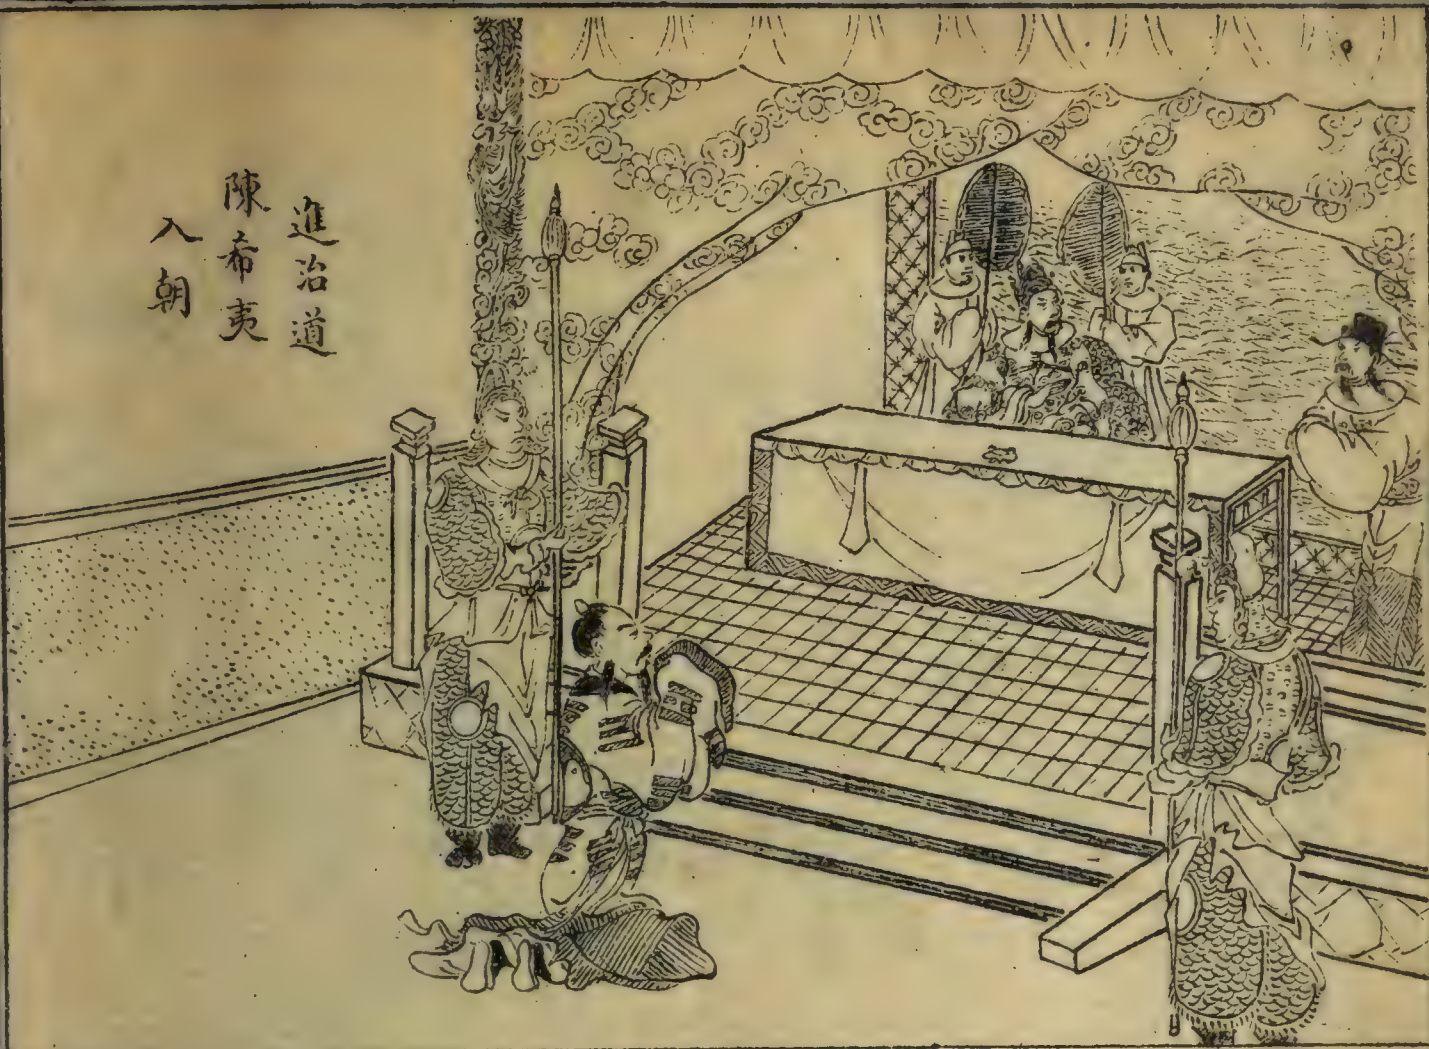 進治道
陳希夷
入朝